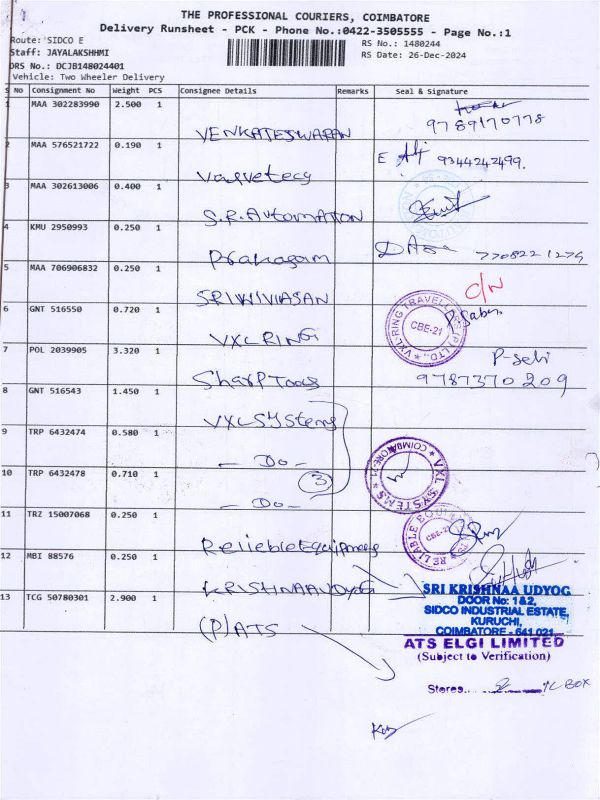 THE PROFESSIONAL COURIERS, COIMBATORE
Delivery Runsheet - PCK - Phone No.:0422-3505555 - Page No.:1
Route: SIDCO E
RS No.: 1480244
Staff: JAYALAKSHHMI
RS Date: 26-Dec-2024
DRS No.: DCJB148024401
Vehicle: Two Wheeler Delivery
S No Consignment No Weight PCS Consignee Details Remarks Seal & Signature
1 MAA 302283990 2.500 1
VENKATESWARAN 9789170778
2 MAA 576521722 0.190 1
E 9344242499.
3 MAA 302613006 0.400 1
S.R.Automation
4 KMU 2950993 0.250 1
7708221274
5 MAA 706906832 0.250 1
SRINIVIASAN C/N
6 GNT 516550 0.720 1
VXLRING
VXLRING TRAVELLERS (P) LTD., CBE-21
7 POL 2039905 3.320 1
Sharp Tools 9787370209
8 GNT 516543 1.450 1
VXL Systems
9 TRP 6432474 0.580 1
- Do -
10 TRP 6432478 0.710 1
- Do - 3
VXL SYSTEMS COIMBATORE-21
11 TRZ 15007068 0.250 1
Reliable Equipments
RELIABLE EQUI CBE-21
12 MBI 88576 0.250 1
KRISHNAA UDyOG
SRI KRISHNAA UDYOG
DOOR No: 1&2,
SIDCO INDUSTRIAL ESTATE,
KURUCHI,
COIMBATORE - 641 021
13 TCG 50780301 2.900 1
(P) ATS
ATS ELGI LIMITED
(Subject to Verification)
Stores BOX